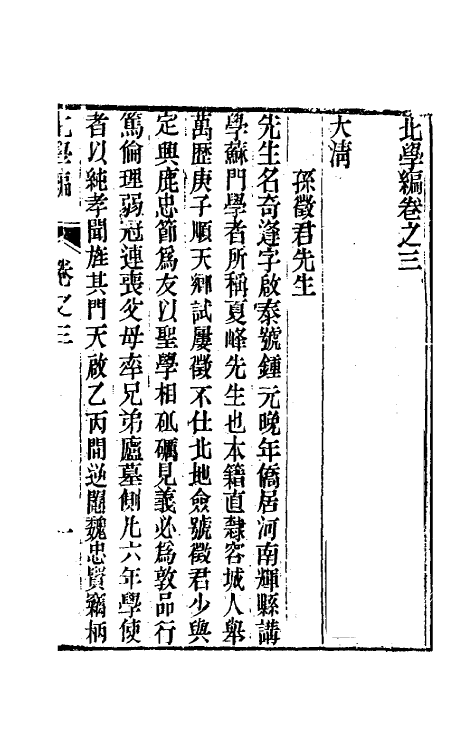 北學編卷之三
大淸
孫徵君先生
先生名奇逢字啟泰號鍾元晚年僑居河南輝縣講
學蘇門學者所稱夏峰先生也本籍直隸容城人舉
萬歷庚子順天鄉試屢徵不仕北地僉號徵君少與
定興鹿忠節爲友以聖學相砥礪見義必爲敦品行
篤倫理弱冠連喪父母率兄弟廬墓側凡六年學使
者以純孝聞旌其門天啟乙丙間逆閹魏忠賢竊柄
北學編 卷之三 一